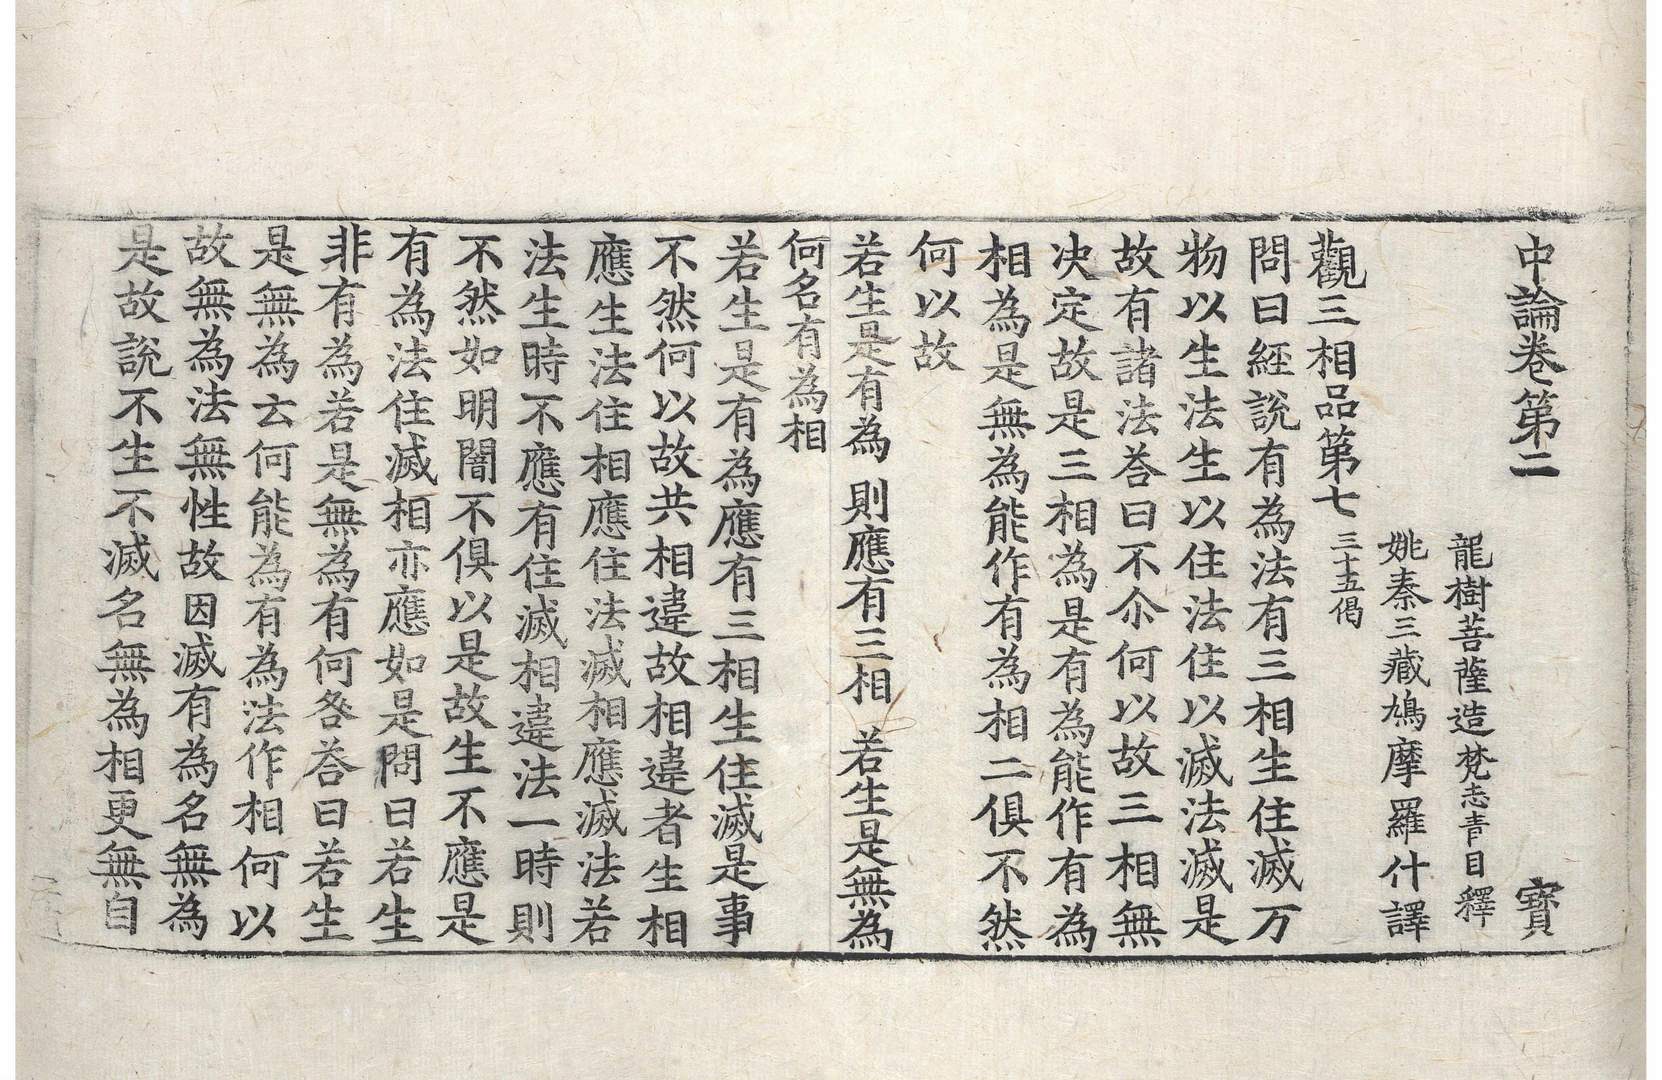 中論卷第二 寶
龍樹菩薩造 梵志青目釋
姚秦三藏鳩摩羅什譯
觀三相品第七 三十五偈
問曰經說有為法有三相生住滅万
物以生法生以住法住以滅法滅是
故有諸法荅曰不尒何以故三相無
决定故是三相為是有為能作有為
相為是無為能作有為相二俱不然
何以故
若生是有為 則應有三相 若生是無為
何名有為相
若生是有為應有三相生住滅是事
不然何以故共相違故相違者生相
應生法住相應住法滅相應滅法若
法生時不應有住滅相違法一時則
不然如明闇不俱以是故生不應是
有為法住滅相亦應如是問曰若生
非有為若是無為有何咎荅曰若生
是無為云何能為有為法作相何以
故無為法無性故因滅有為名無為
是故說不生不滅名無為相更無自